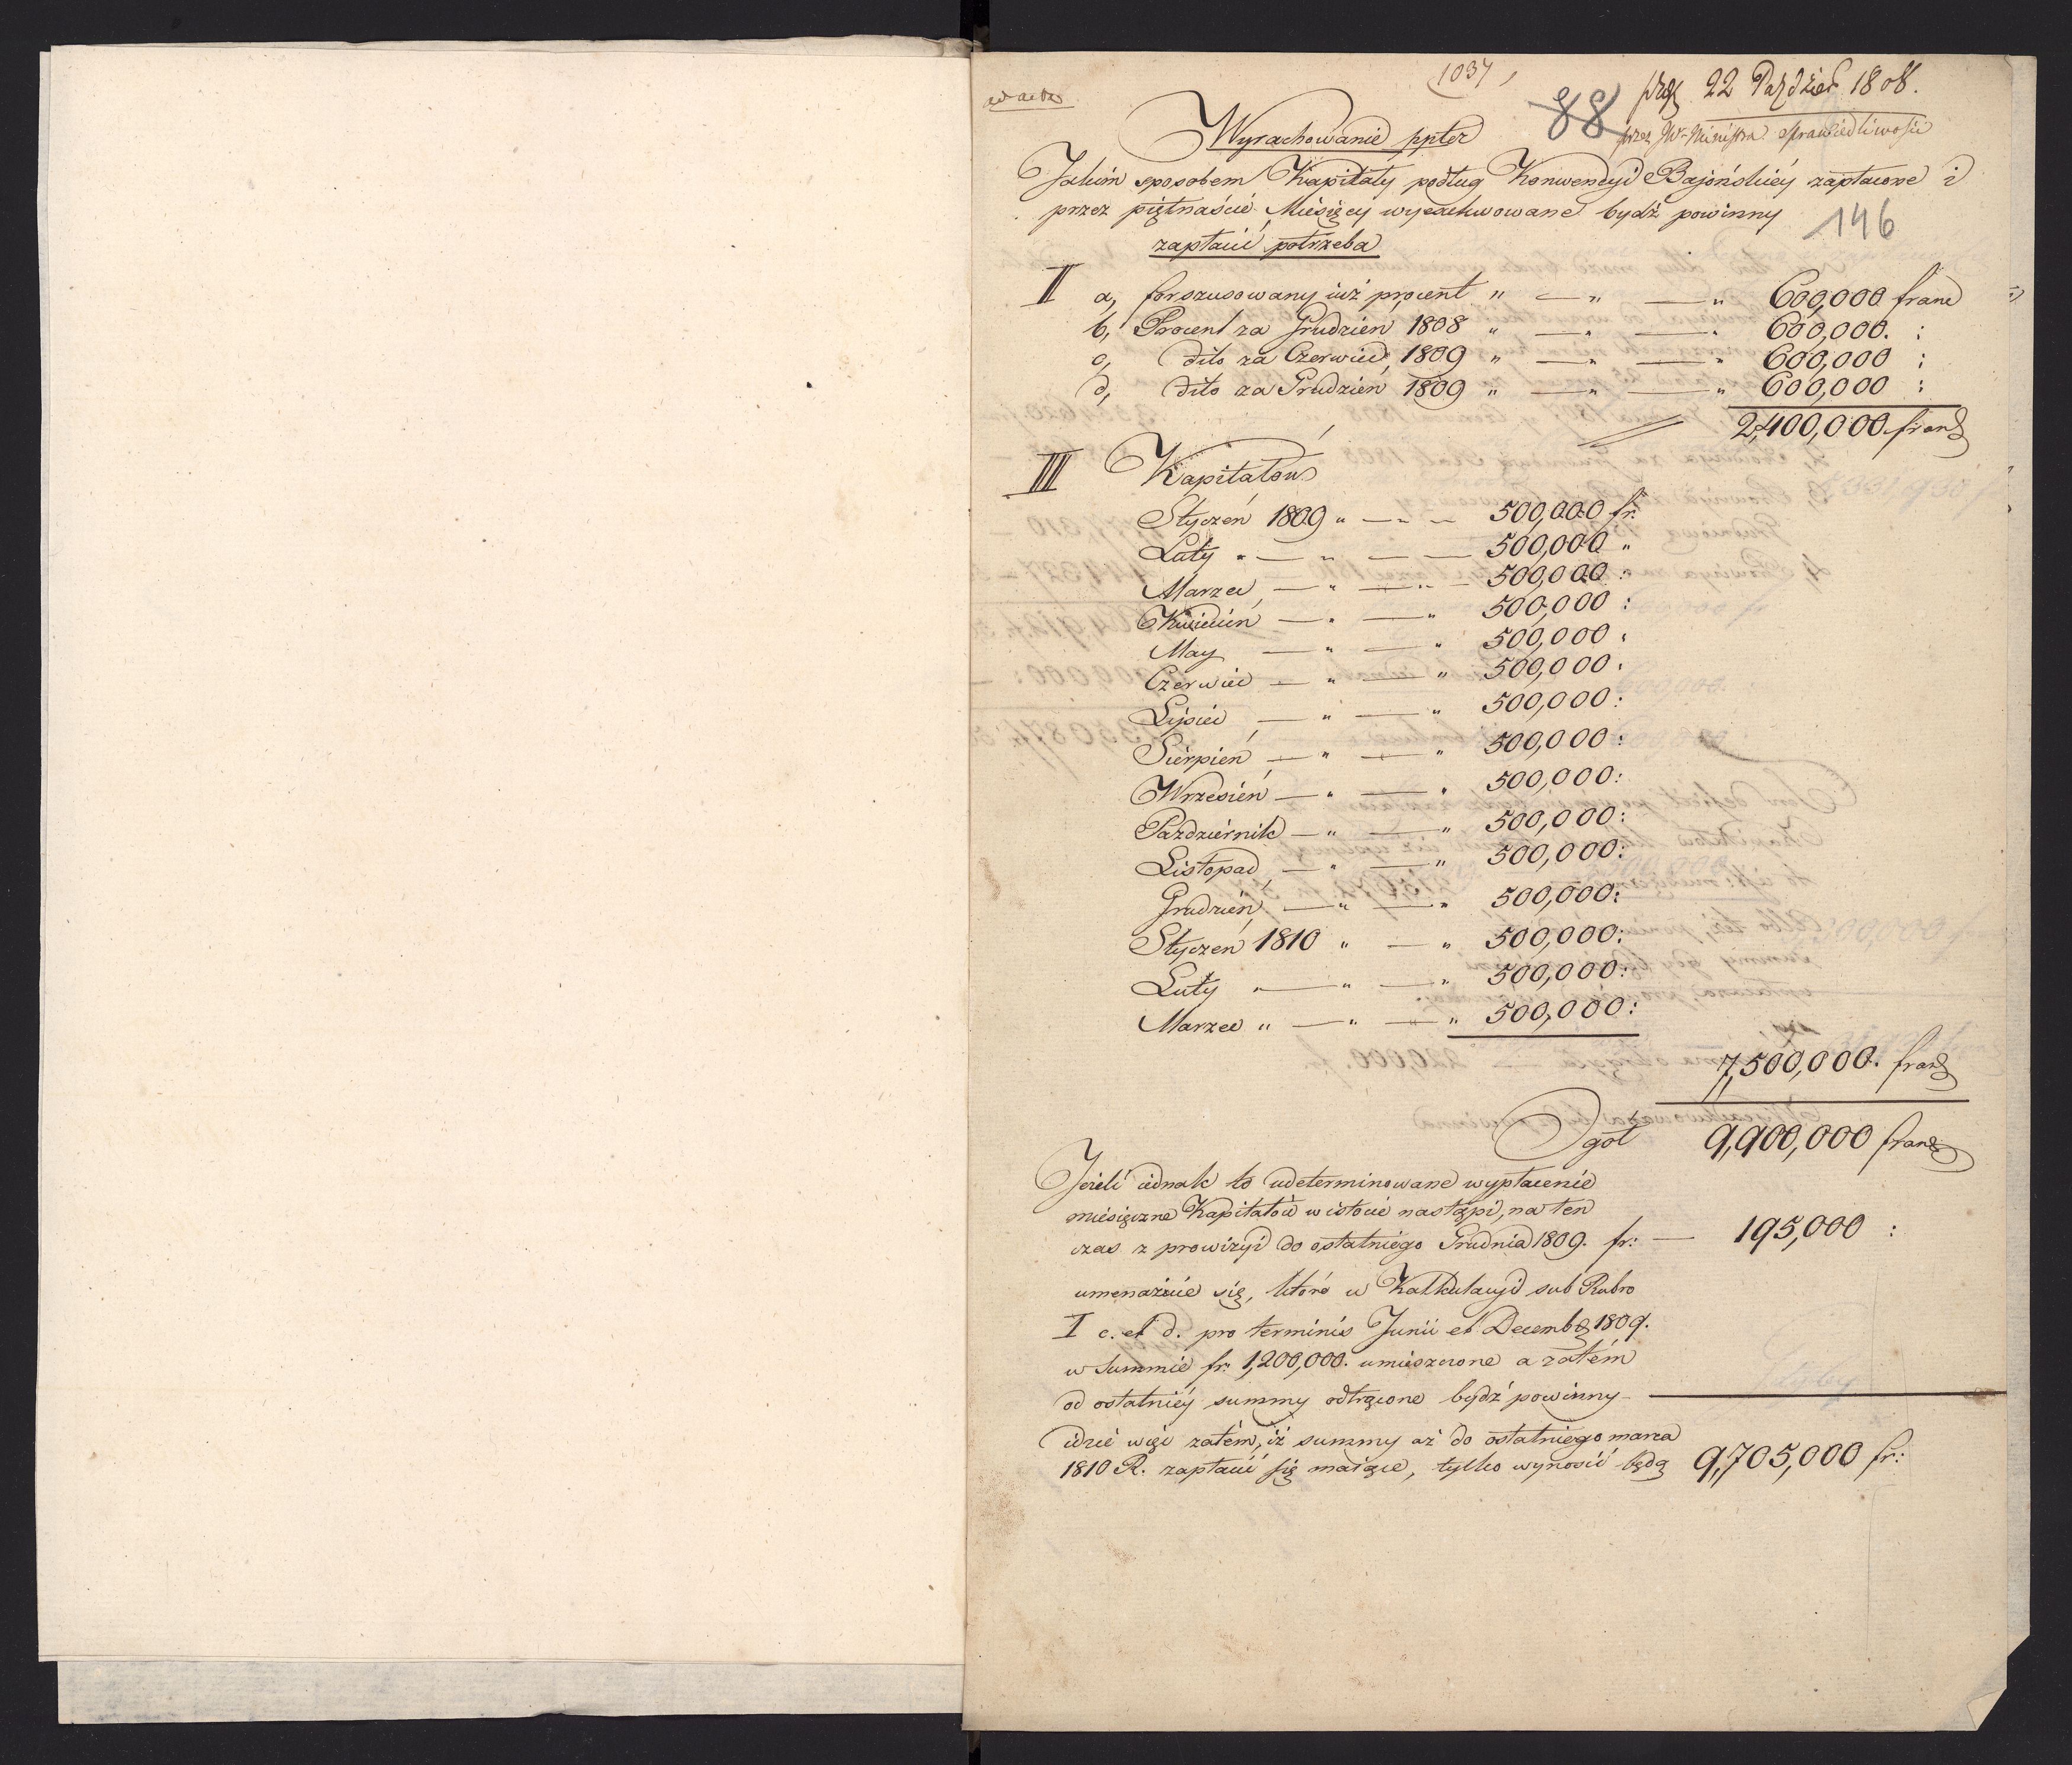 1037,
ad acta
88
22 Paździer 1808.
przez JW. Ministra Sprawiedliwości
Wyrachowanie ppter
Jakim sposobem Kapitały podług Konwencyi Bajońskiéy zapłacone i
przez piętnaście Miesięcy wyrachowane bydź powinny
146
zapłacić potrzeba
II a, forszusowany iuż procent „ — „ — „ 600,000 franc
b, Procent za Grudzień 1808 „ — „ — „ 600,000. :
c, dito za Czerwiec, 1809 „ — „ — „ 600,000 :
d, dito za Grudzień 1809 „ — „ — „ 600,000 :
2,400,000 franc
III Kapitałów
Styczeń 1809 „ — „ — 500,000 fr:
Luty „ — „ — — 500,000 „
Marzec, — „ — „ — 500,000 :
Kwiecień — „ — „ 500,000 :
May — „ — „ 500,000 :
Czerwiec — „ — „ 500,000 :
Lipiec — „ — „ 500,000 :
Sierpień — „ — „ 500,000 :
Wrzesień — „ — „ 500,000 :
Październik — „ — „ 500,000 :
Listopad — „ — „ 500,000 :
Grudzień — „ — „ 500,000 :
Styczeń 1810 „ — „ 500,000 :
Luty „ — „ — „ 500,000 :
Marzec „ — „ — „ 500,000 :
7,500,000. franc
Ogół 9,900,000 franc
Jeżeli iednak to udeterminowane wypłacenie
miesięczne Kapitałów w istocie nastąpi, na ten
czas z prowizyi do ostatniego Grudnia 1809. fr: — 195,000 :
umenażuie się, które w Kalkulacyi sub Rubro
I c. et d. pro terminis Junii et Decemb 1809.
w Summie fr: 1,200,000. umieszczone a zatém
od ostatniéy summy odtrącone bydź powinny —
idzie więc zatém, iż summy aż do ostatniego marca
1810 R. zapłacić się maiące, tylko wynosić będą 9,705,000 fr: